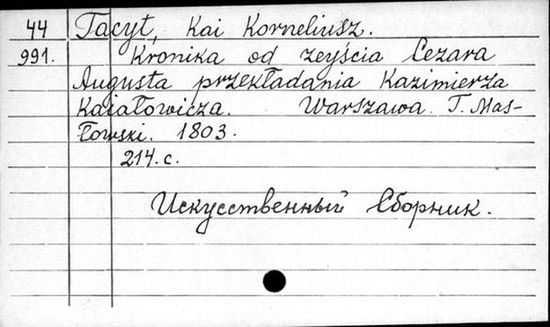 44 Tacyt, Kai Korneliusz.
991. Kronika od zeyścia Cezara
Augusta przekładania Kazimierza
Kaiałowicza. Warszawa. T. Mas-
łowski. 1803.
214. c.
Искусственный Сборник.